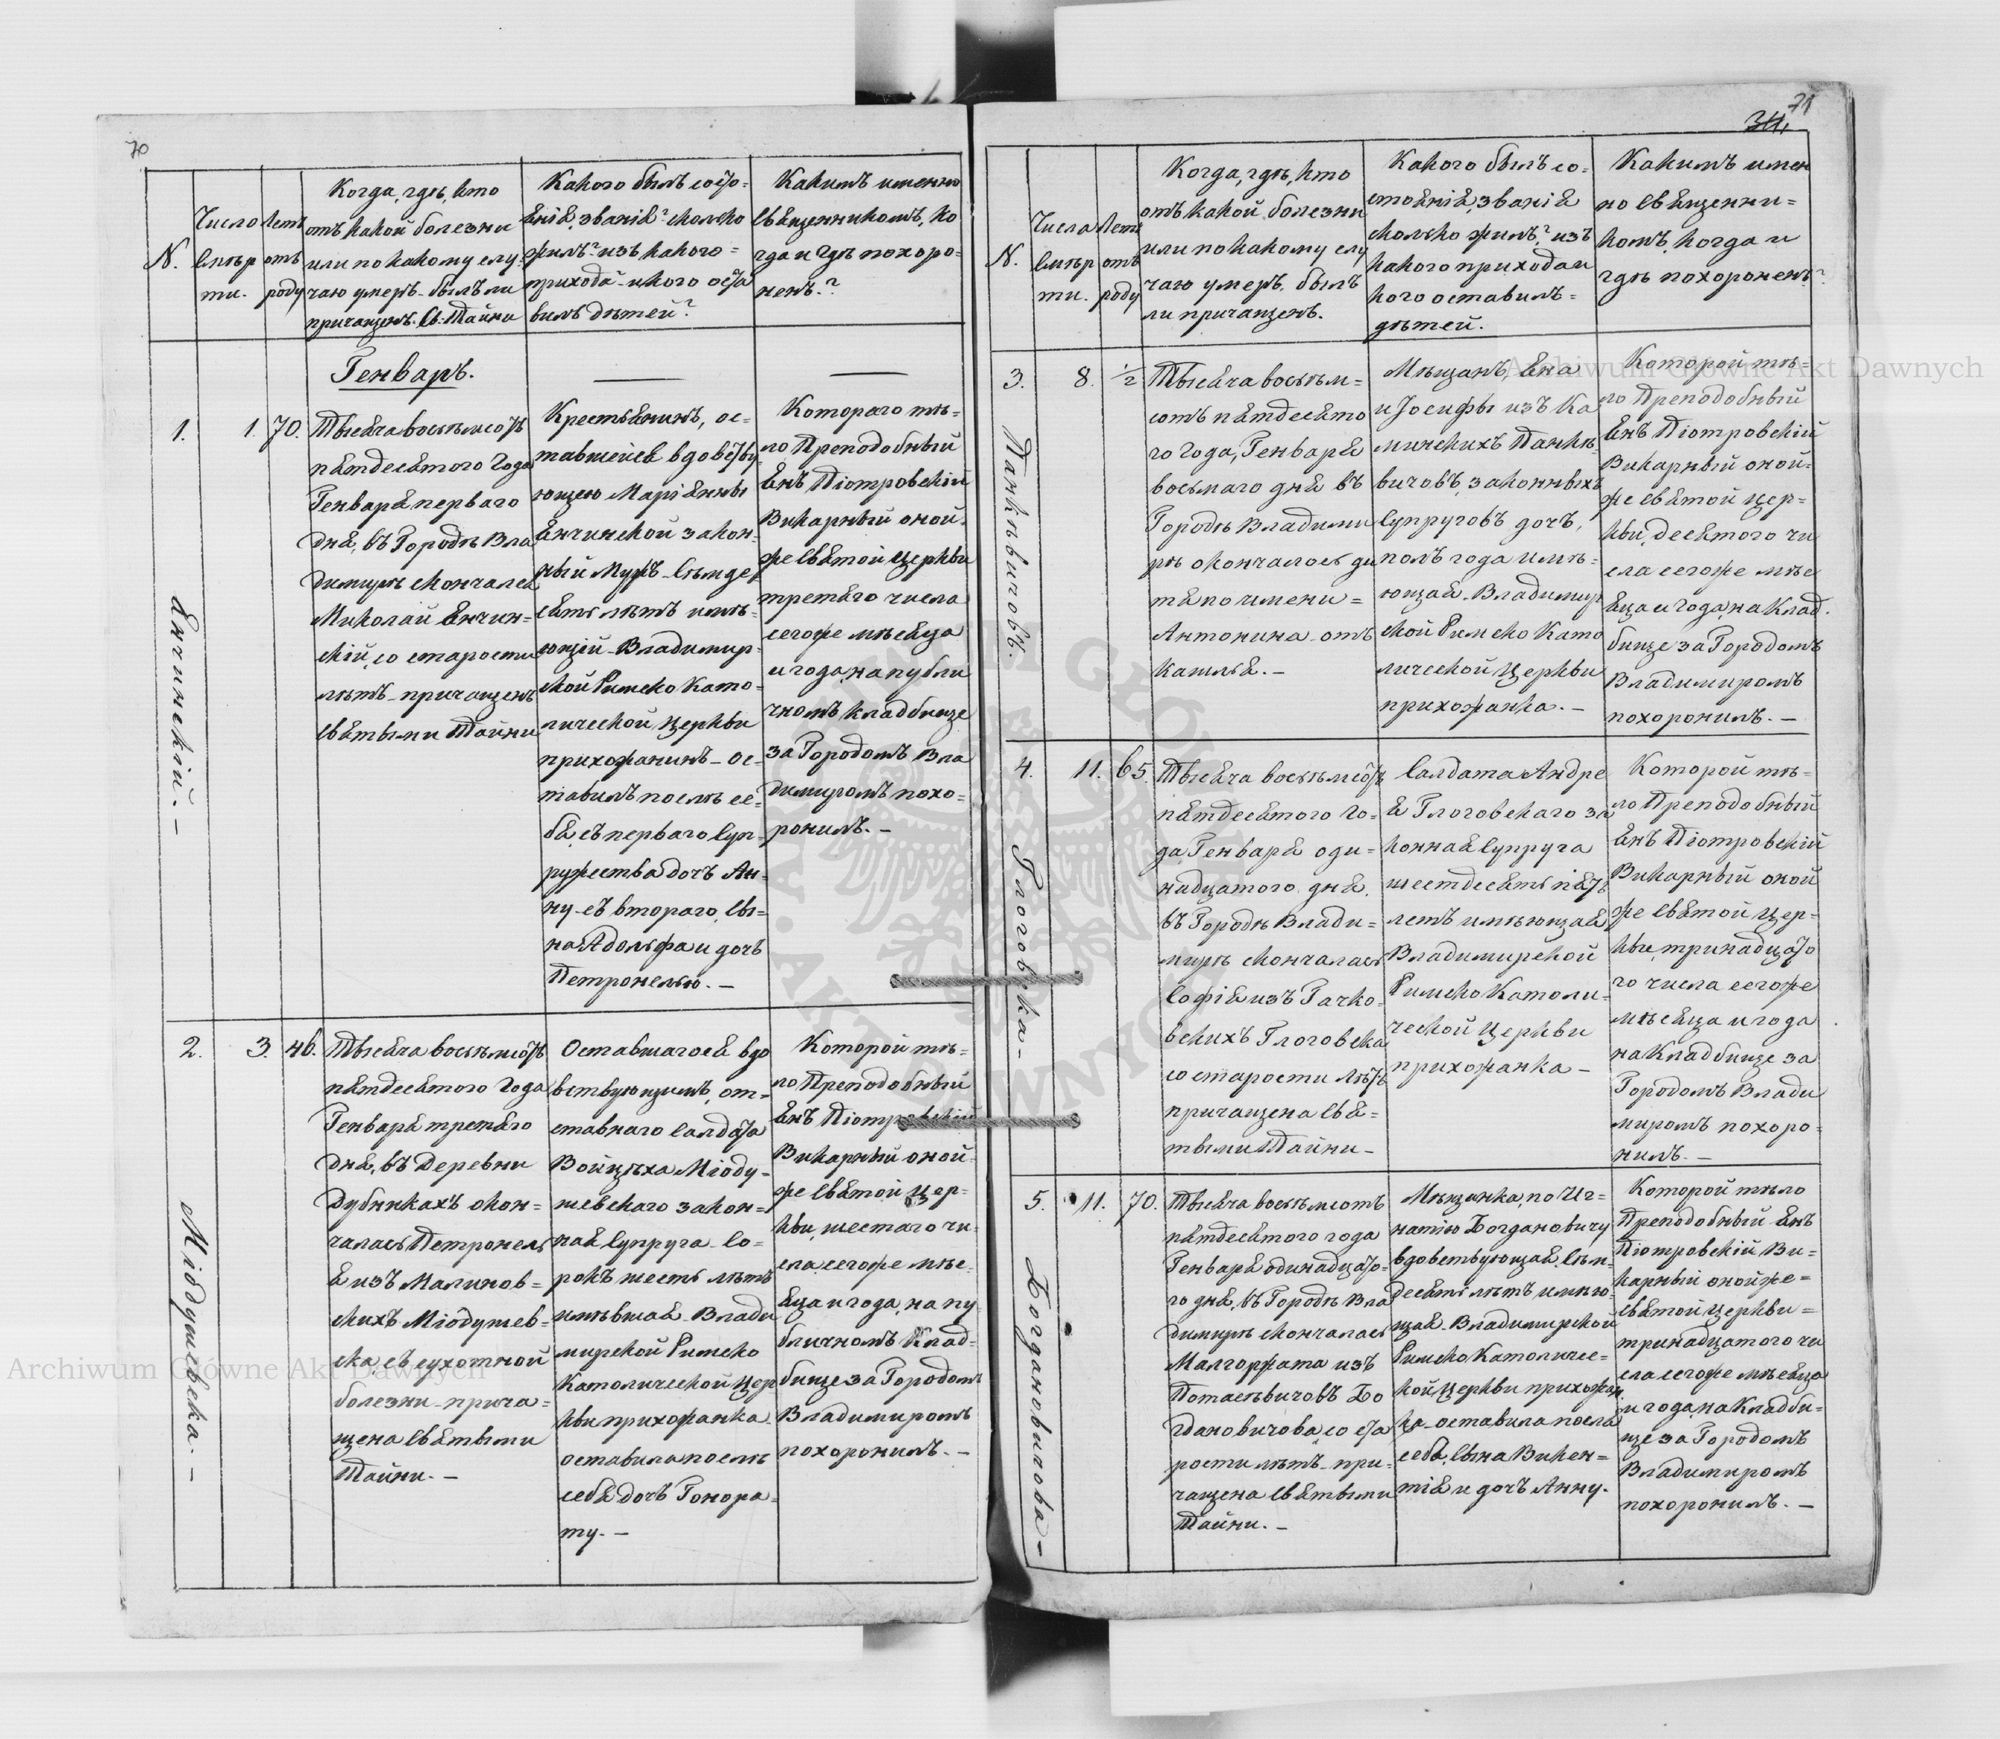 70
N.
Число
смѣр
ти.
Летъ
отъ
роду
Когда, гдѣ, кто
отъ какой болезни
или по какому слу-
чаю умеръ- былъ ли
причащенъ. Св. Тайни
Какого былъ состо-
янія, званія? сколько
жилъ? изъ какого-
прихода- и кого оста
вилъ дѣтей?
Какимъ именно
священникомъ, ко
гда и гдѣ похоро-
ненъ.?
Генваръ.
1.
1.
70.
Енчинскій.-
Тысяча восьмсотъ
пятдесятого Года
Генваря первого
дня, въ Городѣ Вла
димирѣ скончался
Миколай Енчин-
скій, со старости
лѣтъ- причащенъ
святыми Тайни
Крестьянинъ, ос-
тавшейся вдовству-
ющею Маріянны
Енчинской закон-
ный Мужъ- семде
сятъ лѣтъ имѣ-
ющій- Владимир-
ской Римско Като-
лической Церкви
прихожанинъ- ос-
тавилъ послѣ се-
бя, съ перваго Суп-
ружества дочъ Ан-
ну- съ второго, Сы-
на Адольфа и дочъ
Петронелю.-
Котораго тѣ-
ло Преподобный
Янъ Піотровскій
Викарный оной-
же святой Церкви
третяго числа
сегоже мѣсяца
и года, на публи
чномъ кладбище
за Городомъ Вла
димиромъ похо-
ронилъ.-
2.
3.
46.
Міодушевска.-
Тысяча восьмсотъ
пятдесятого Года
Генваря третяго
дня, въ Деревни
Дубникахъ скон-
чалась Петронел
я изъ Малинов-
скихъ Міодушев-
ска, съ сухотной
болезни- прича-
щена святыми
Тайни.-
Оставшагося вдо
вствующимъ, от-
ставнаго Салдата
Войцѣха Міоду-
шевскаго закон-
ная Супруга- Со-
рокъ шесть лѣтъ
имѣвшая- Влади
мирской Римско
Католической Цер
кви прихожанка
оставила послѣ
себя дочъ Гонора-
ту.-
Которой тѣ-
ло Преподобный
Янъ Піотровскій
Викарный оной-
же святой Цер-
кви, шестаго чи-
сла, сегоже мѣс-
яца и года, на пу
бличномъ Клад-
бище за Городомъ
Владимиромъ
похоронилъ.-
71
34,
N.
Числа
смѣр
ти.
Летъ
отъ
роду
Когда, гдѣ, кто
отъ какой болезни
или по какому слу
чаю умеръ. былъ
ли причащенъ.
Какого былъ со-
стоянія, званія
сколько жилъ? изъ
какого прихода и
кого оставилъ-
дѣтей.
Какимъ имен
но священни-
комъ, когда и
гдѣ похороненъ?
3.
8.
1/2
Панкѣвичовъ.
Тысяча восьм-
сотъ пятдесято
го Года, Генваря
восьмаго дня въ
Городѣ Владими
рѣ окончалось ди
тя по имени-
Антонина- отъ
Кашля.-
Мѣщанъ, Яна
и Іосифы изъ Ка
минскихъ Панкѣ
вичовъ, законныхъ
Супруговъ дочъ,
полъ года имѣ-
ющая- Владимир
ской Римско Като
лической Церкви
прихожанка.-
Которой тѣ-
ло Преподобный
Янъ Піотровскій
Викарный оной-
же святой Цер-
кви, десятого чи
сла сегоже мѣс
яца и года, на Клад-
бище за Городомъ
Владимиромъ
похоронилъ.-
4.
11.
65.
Глоговска-
Тысяча восьмсотъ
пятдесятого Го-
да, Генваря оди-
надцатого дня,
въ Городѣ Влади-
мирѣ скончалась
Софія изъ Рачко-
вскихъ Глоговска
со старости лѣтъ
причащена свя-
тыми Тайни-
Салдата Андре
я Глоговскаго за
конная Супруга
шестдесять пять
летъ имѣющая
Владимирской
Римско Католи-
ческой Церкви
прихожанка-
Которой тѣ-
ло Преподобный
Янъ Піотровскій
Викарный оной
же святой Цер-
кви, тринадцато
го числа сегоже
мѣсяца и года
на Кладбище за
Городомъ Влади
миромъ похоро-
нилъ.-
5.
11.
70.
Богдановичова-
Тысяча восьмсотъ
пятдесятого года
Генваря одинадцато-
го дня, въ Городѣ Вла
димирѣ скончалась
Малгоржата изъ
Потасѣвичовъ Бо
гдановичова, со ста
рости лѣтъ- при-
чащена святыми
Тайни.-
Мѣщанка, по Иг-
натію Богдановичу
вдовствующая, сем-
десять лѣтъ имѣю-
щая- Владимирской
Римско Католичес-
кой Церкви прихожан
ка- оставила после
себя, сына Викен-
тія и дочъ Анну.
Которой тѣло
Преподобный Янъ
Піотровскій Ви-
карный онойже-
святой Церкви-
тринадцатого чи
сла сегоже мѣсяца
и года, на Кладби-
ще за Городомъ
Владимиромъ
похоронилъ.-
Archiwum Główne Akt Dawnych
Archiwum Główne Akt Dawnych